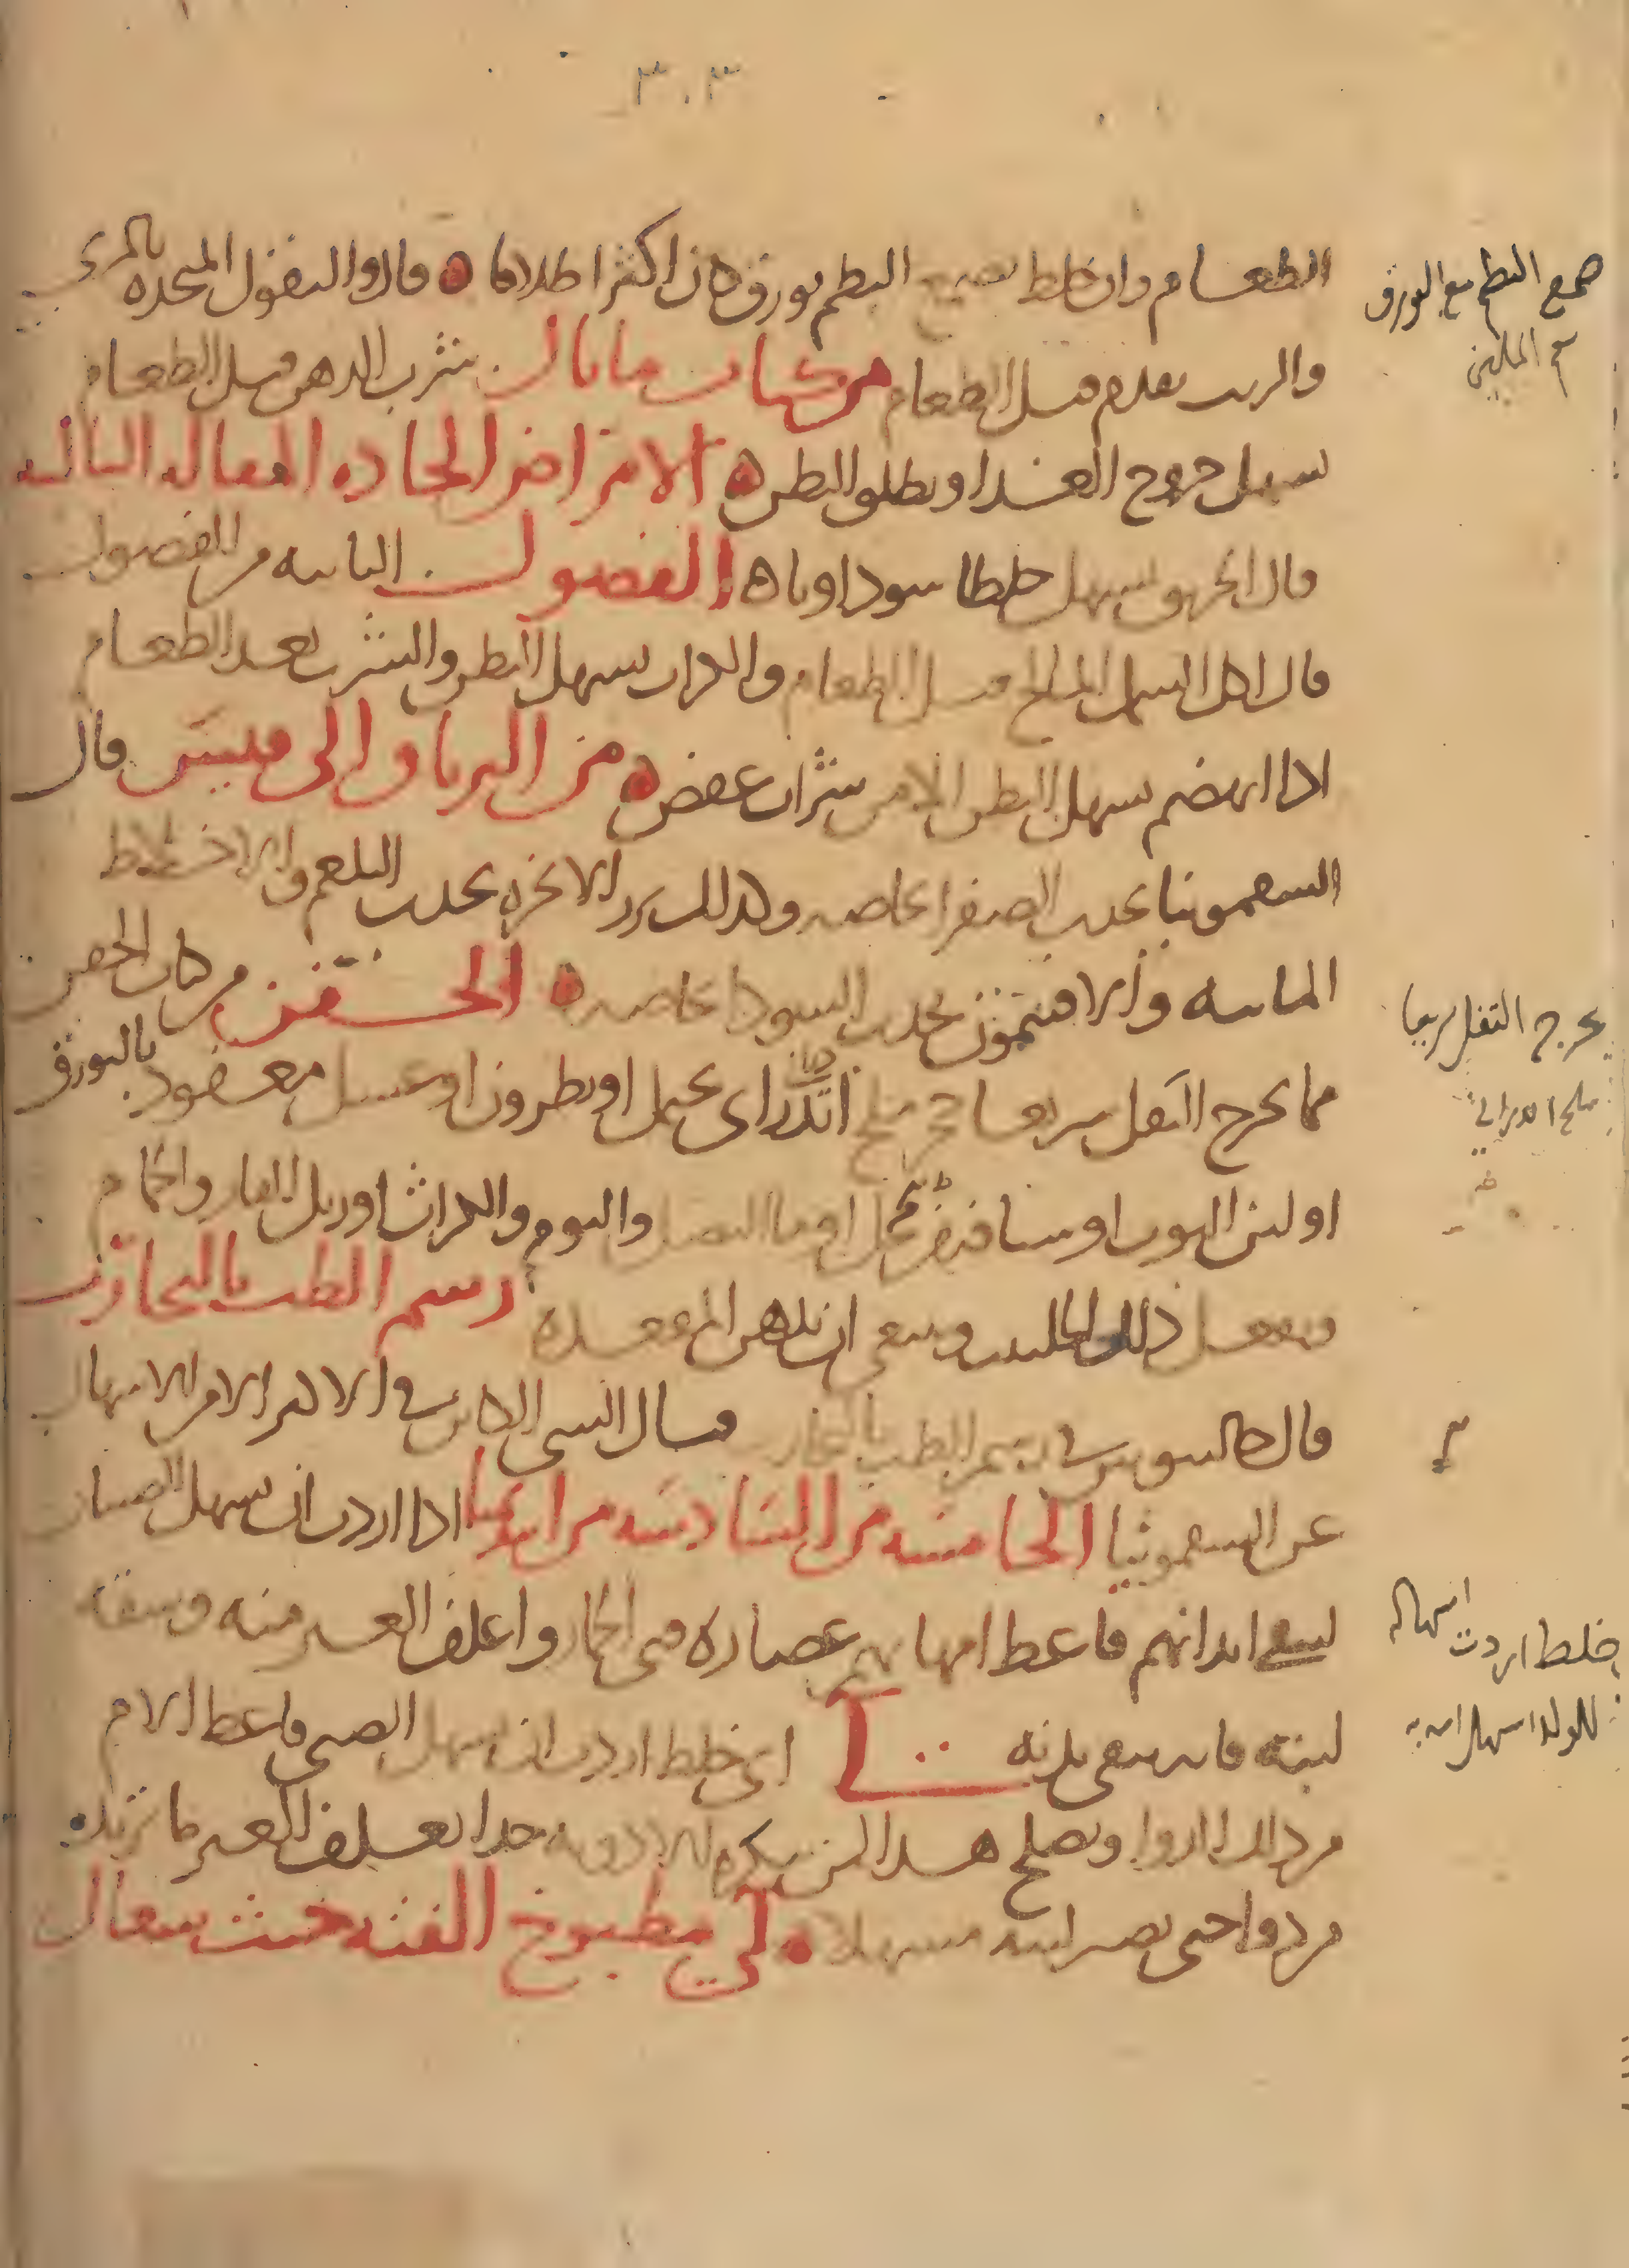 ٣٠٣
الطعام وان خلط بصمغ البطم بورق كان اكثر اطلاقا قال والبقول المتخذه بالمرى
والزيت يقدم قبل الطعام من كتاب ما بال شرب الدهن قبل الطعام
يسهل خروج الغذا ويطلق البطن الامراض الحاده المقاله الثالثه
قال الخربق يسهل خلطا سوداويا الفصول الثانيه من الفصول
قال اكل السمك المالح قبل الطعام والكراث يسهل البطن والشرب بعد الطعام
اذا انهضم يسهل البطن شراب عفص من الترياق الى قيصر قال
السقمونيا يجذب الصفرا خاصه وكذلك بزر الانجره يجذب البلغم والاخلاط
المائيه والافتيمون يجذب السودا خاصه الحقن من كتاب الحقن
مما يخرج الثفل سريعا ملح اندرانى يحمل او نطرون او عسل معقود بالبورق
او لبن التوت او يحمل او ما البصل والثوم والكراث او زبل الفار والحمام
ويفعل ذلك الحلتيت وينبغى ان تدهن المقعده رسم الطب بالتجارب
قال جالينوس فى رسم الطب بالتجارب قد ينال الشى الكاين فى الاكثر الامر الاسهال
عن السقمونيا الخامسه من السادسه من ابيذيميا اذا اردت ان تسهل الصبيان
لتنقى ابدانهم فاعط امهاتهم عصاره قثى الحمار واعلف العنز منه وسقه
لبنه فانه ينقى بدنه لى اى خلط اردت ان تسهل الصبى فاعط الام
من ذلك الدوا ويصلح هذا لمن يكره الادويه جدا يعلف العنز ما تريده
من دوا حتى يصير لبنه مسهلا لى مطبوخ الفته حيث سعال
صمغ البطم مع البورق
من الملين
يخرج الثفل سريعا
ملح اندرانى
خلط اردت اسهاله
للولد اسهل امه به